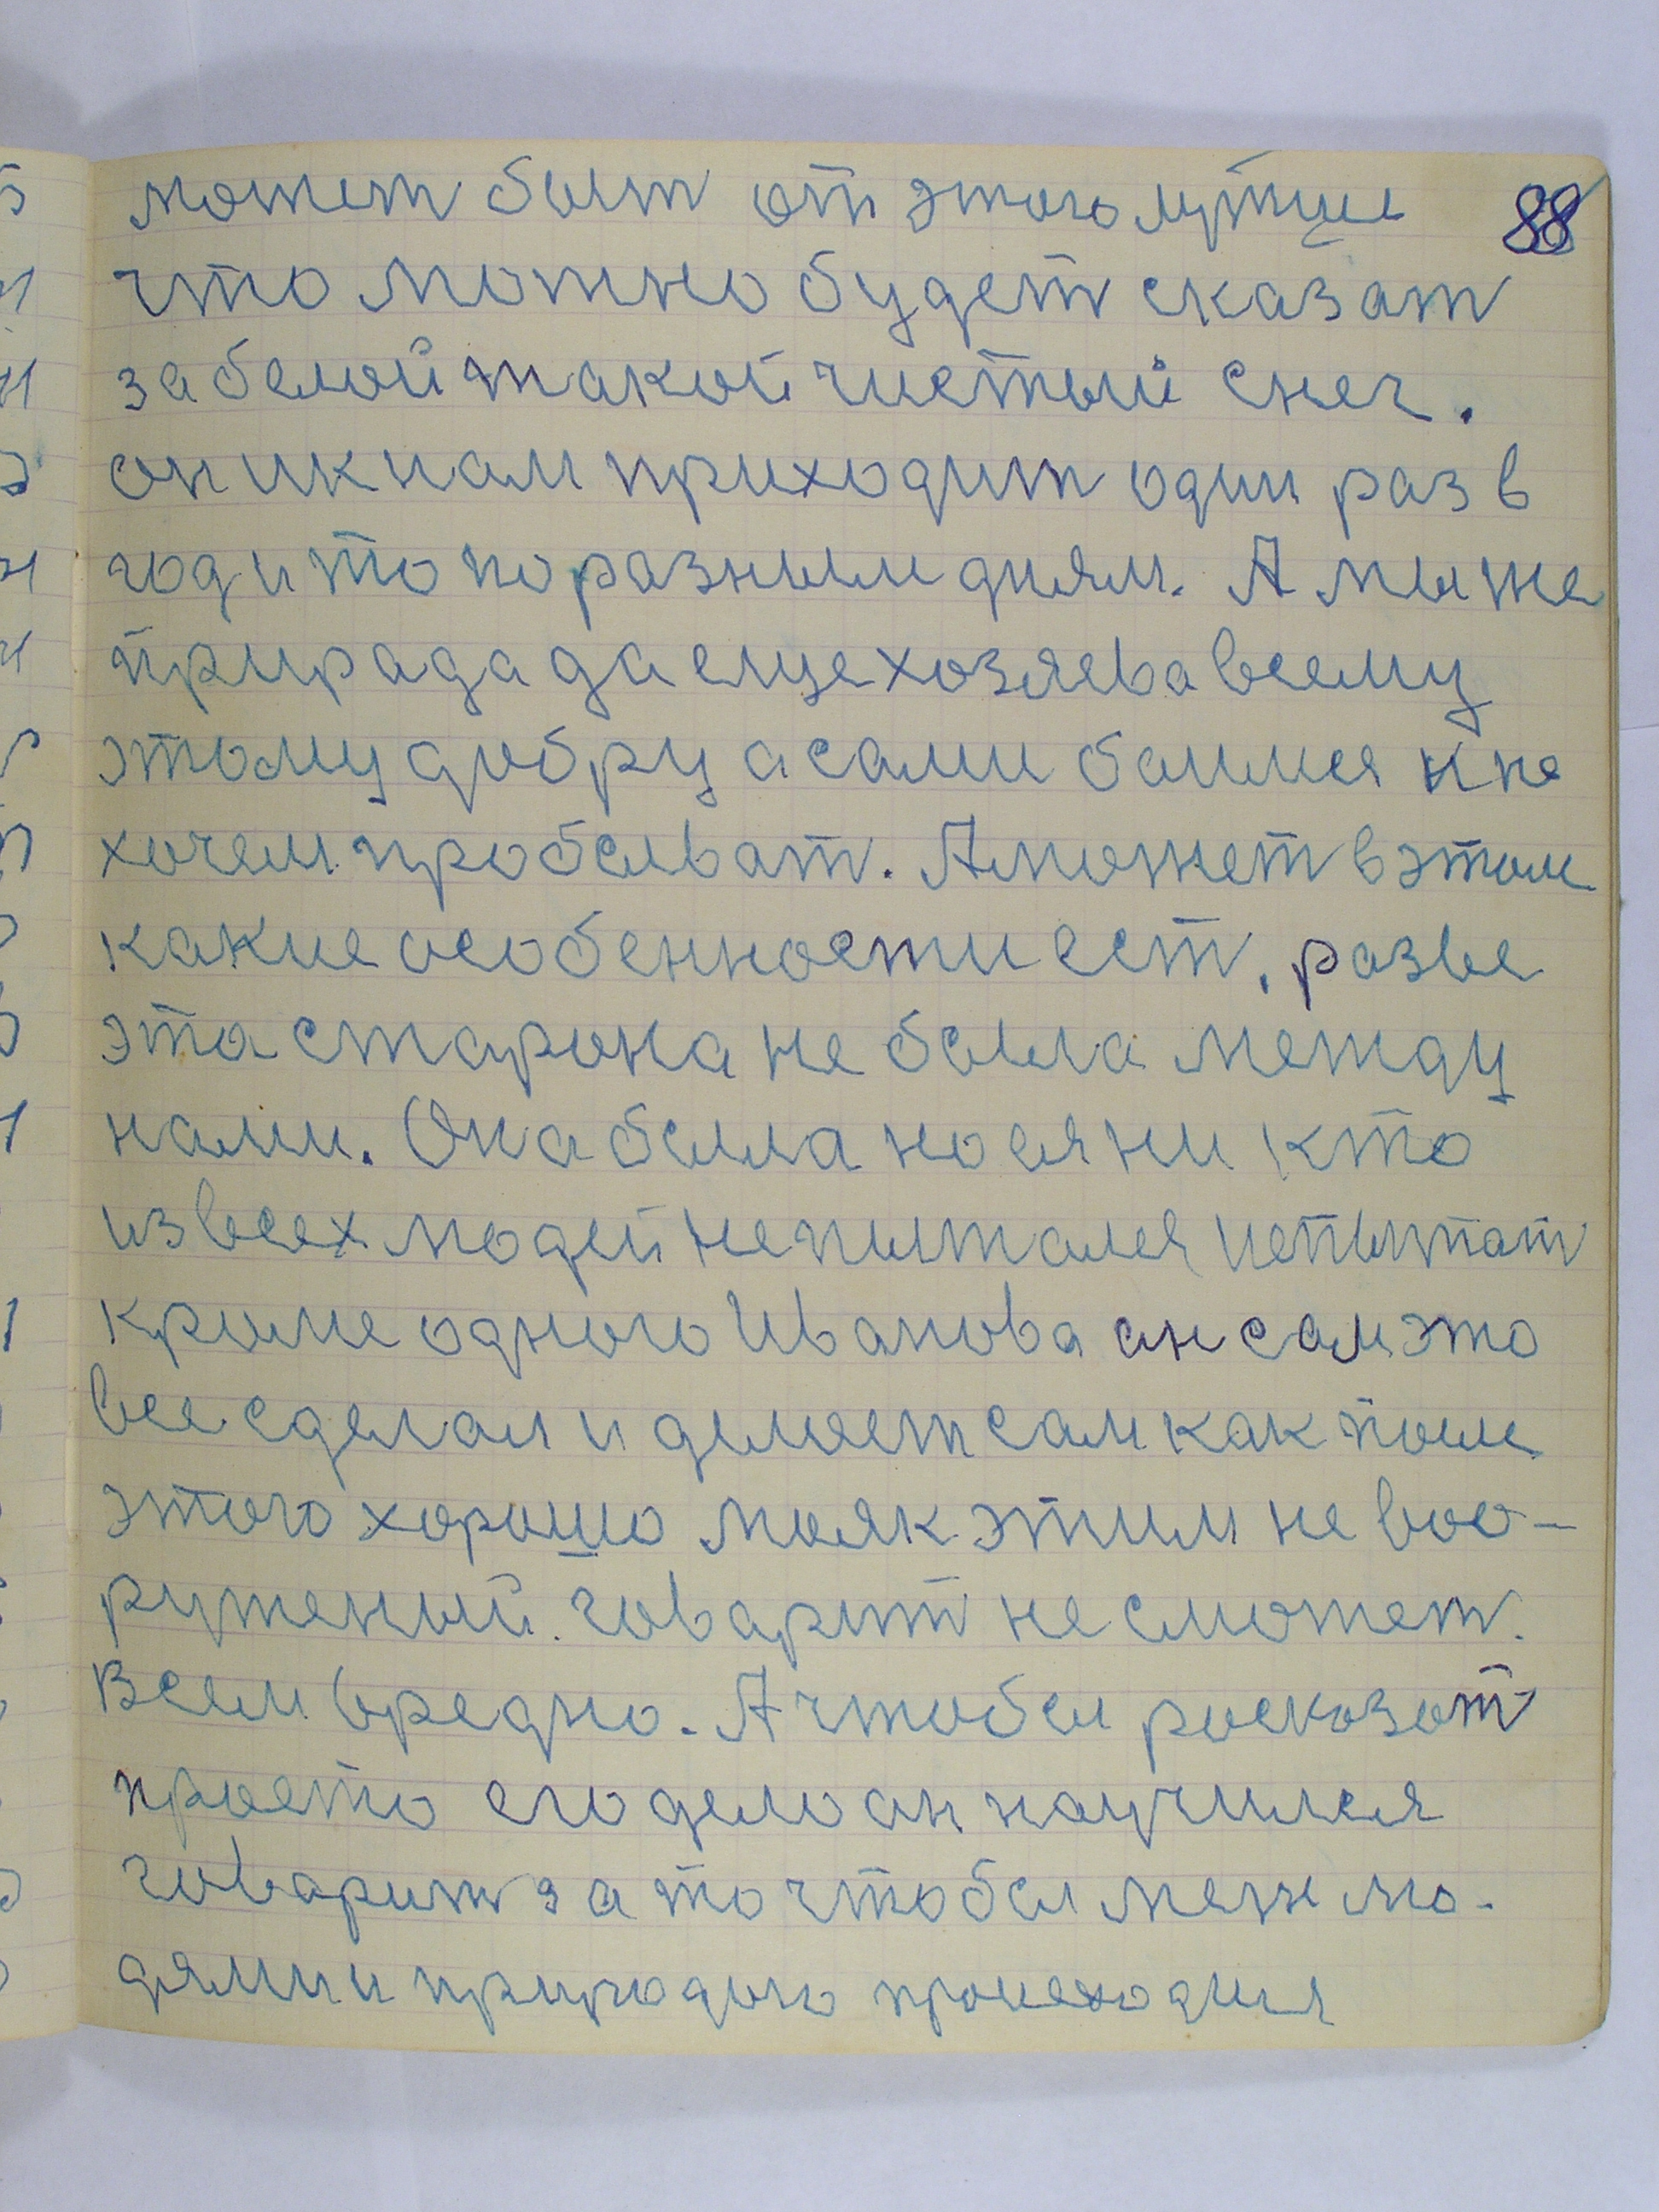 может быт от этого лутше 88
что можно будет сказат
за белой такой чистый снег.
он и к нам приходит один раз в
год и то по разным дням. А мы же
прирада да еще хозяева всему
этому добру а сами баимся и не
хочем пробыват. А может в этом
какие особенности ест, разве
эта старона не была между
нами. Она была но ея ни кто
из всех людей не пытался испытат
кроме одного Иванова ан сам это
все сделал и делает сам как после
этого хорошо маяк этим не воо-
руженый. говарит не сможет.
Всем вредно. А чтобы росказат
просто его дело ан научился
говарит за то чтобы меж лю-
дями и природыю происходил